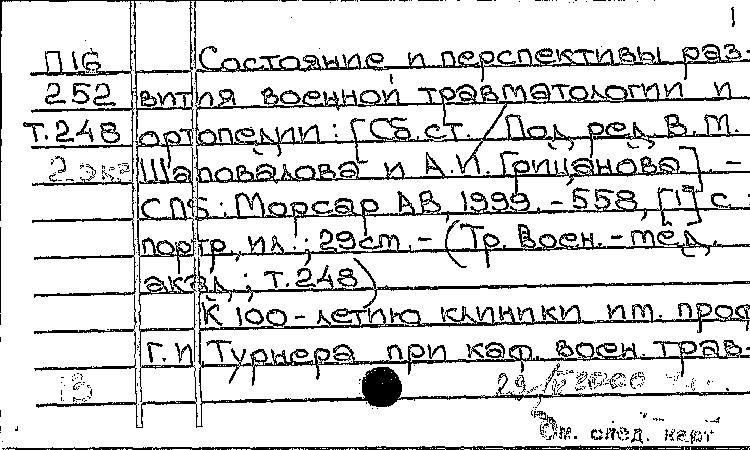 1
П16 Состояние и перспективы раз-
252 вития военной травматологии и
Т.248 ортопедии: [Сб. ст. / Под ред. В.М.
2 экз Шаповалова и А.И. Грицанова]. -
СПб: Морсар АВ, 1999. - 558, [1] с.:
портр., ил.; 29 см. - (Тр. Воен.-мед.
акад.; Т.248)
К 100-летию клиники им. проф.
Г.И. Турнера при каф. воен. трав-
13
См. след. карт